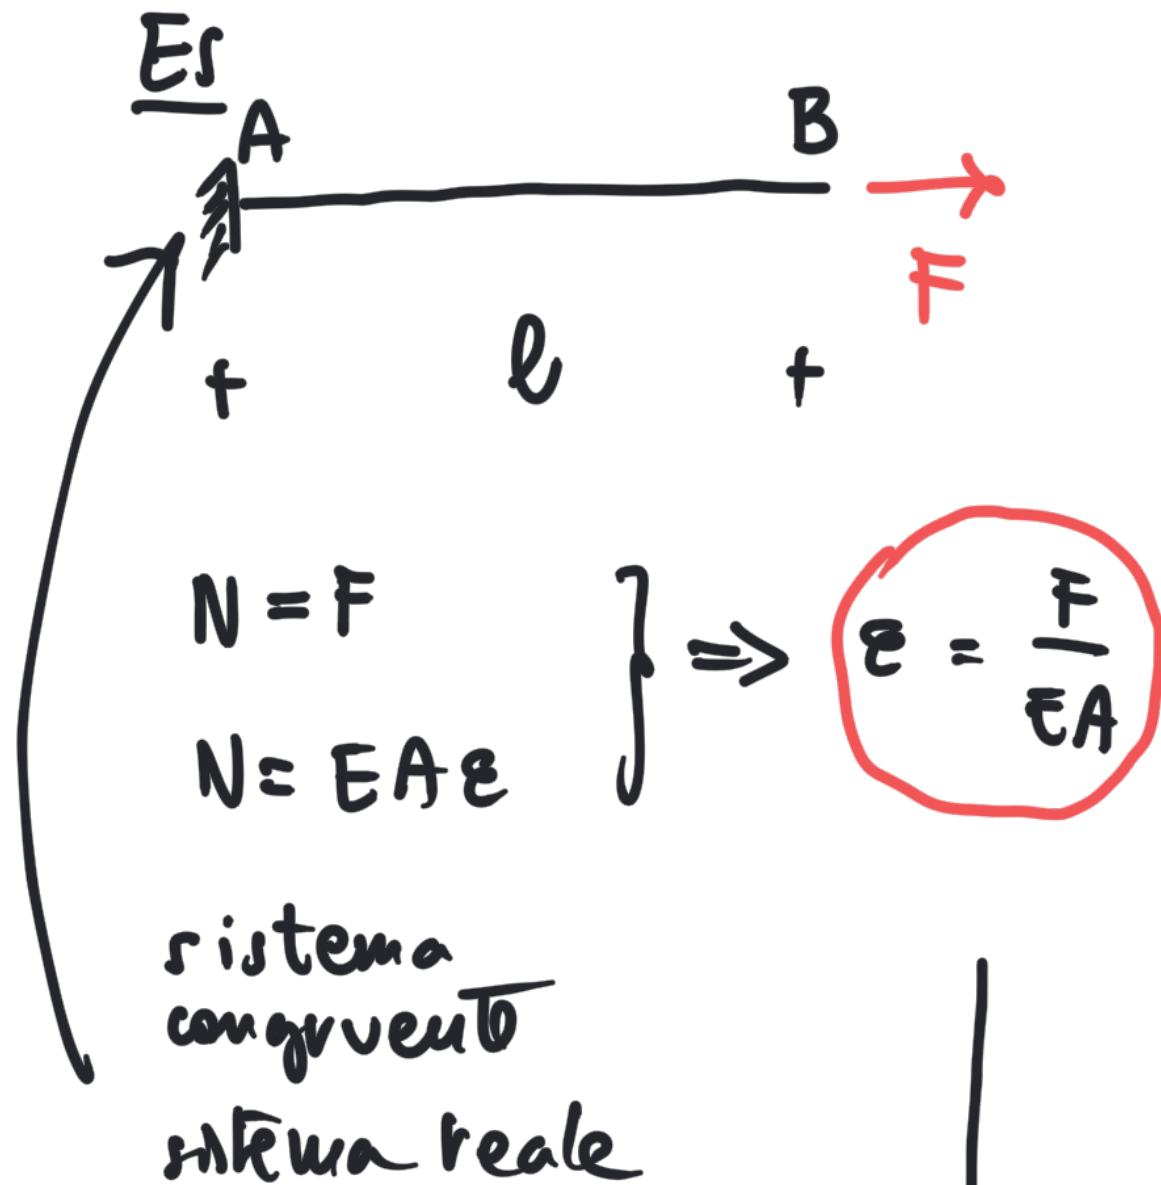 Es
A B
F
l
N = F
N = EAε
⇒ ε = F/EA
sistema
congruente
sistema reale